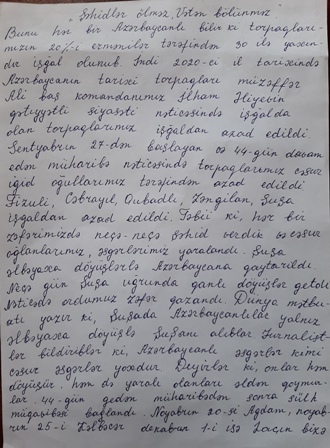 Şəhidlər ölməz, Vətən bölünməz!
Bunu hər bir Azərbaycanlı bilir ki torpaqları-
mızın 20%-i ermənilər tərəfindən 30 ilə yaxın-
dır işğal olunub. İndi 2020-ci il tarixində
Azərbaycanın tarixi torpaqları müzəffər
Ali baş komandanımız İlham Əliyevin
qətiyyətli siyasəti nəticəsində işğalda
olan torpaqlarımız işğaldan azad edildi.
Sentyabrın 27-dən başlayan və 44-gün davam
edən müharibə nəticəsində torpaqlarımız cəsur
igid oğullarımız tərəfindən azad edildi.
Fizuli, Cəbrayıl, Qubadlı, Zəngilan, Şuşa
işğaldan azad edildi. Təbii ki, hər bir
zəfərimizdə neçə-neçə şəhid verdik və cəsur
oğlanlarımız, əsgərlərimiz yaralandı. Şuşa
əlbəyaxa döyüşlərlə Azərbaycana qaytarıldı.
Neçə gün Şuşa uğrunda qanlı döyüşlər getdi.
Nəticədə ordumuz zəfər qazandı. Dünya mətbu-
atı yazır ki, Şuşada Azərbaycanlılar yalnız
əlbəyaxa döyüşlə Şuşanı alıblar. Jurnalist-
lər bildiriblər ki, Azərbaycanlı əsgərlər kimi
cəsur əsgərlər yoxdur. Deyirlər ki, onlar həm
döyüşür, həm də yaralı olanları əldən qoymur-
lar. 44-gün gedən müharibədən sonra sülh
müqaviləsi bağlandı. Noyabrın 20-si Ağdam, noyab-
rın 25-i Kəlbəcər dekabrın 1-i isə Laçın bizə